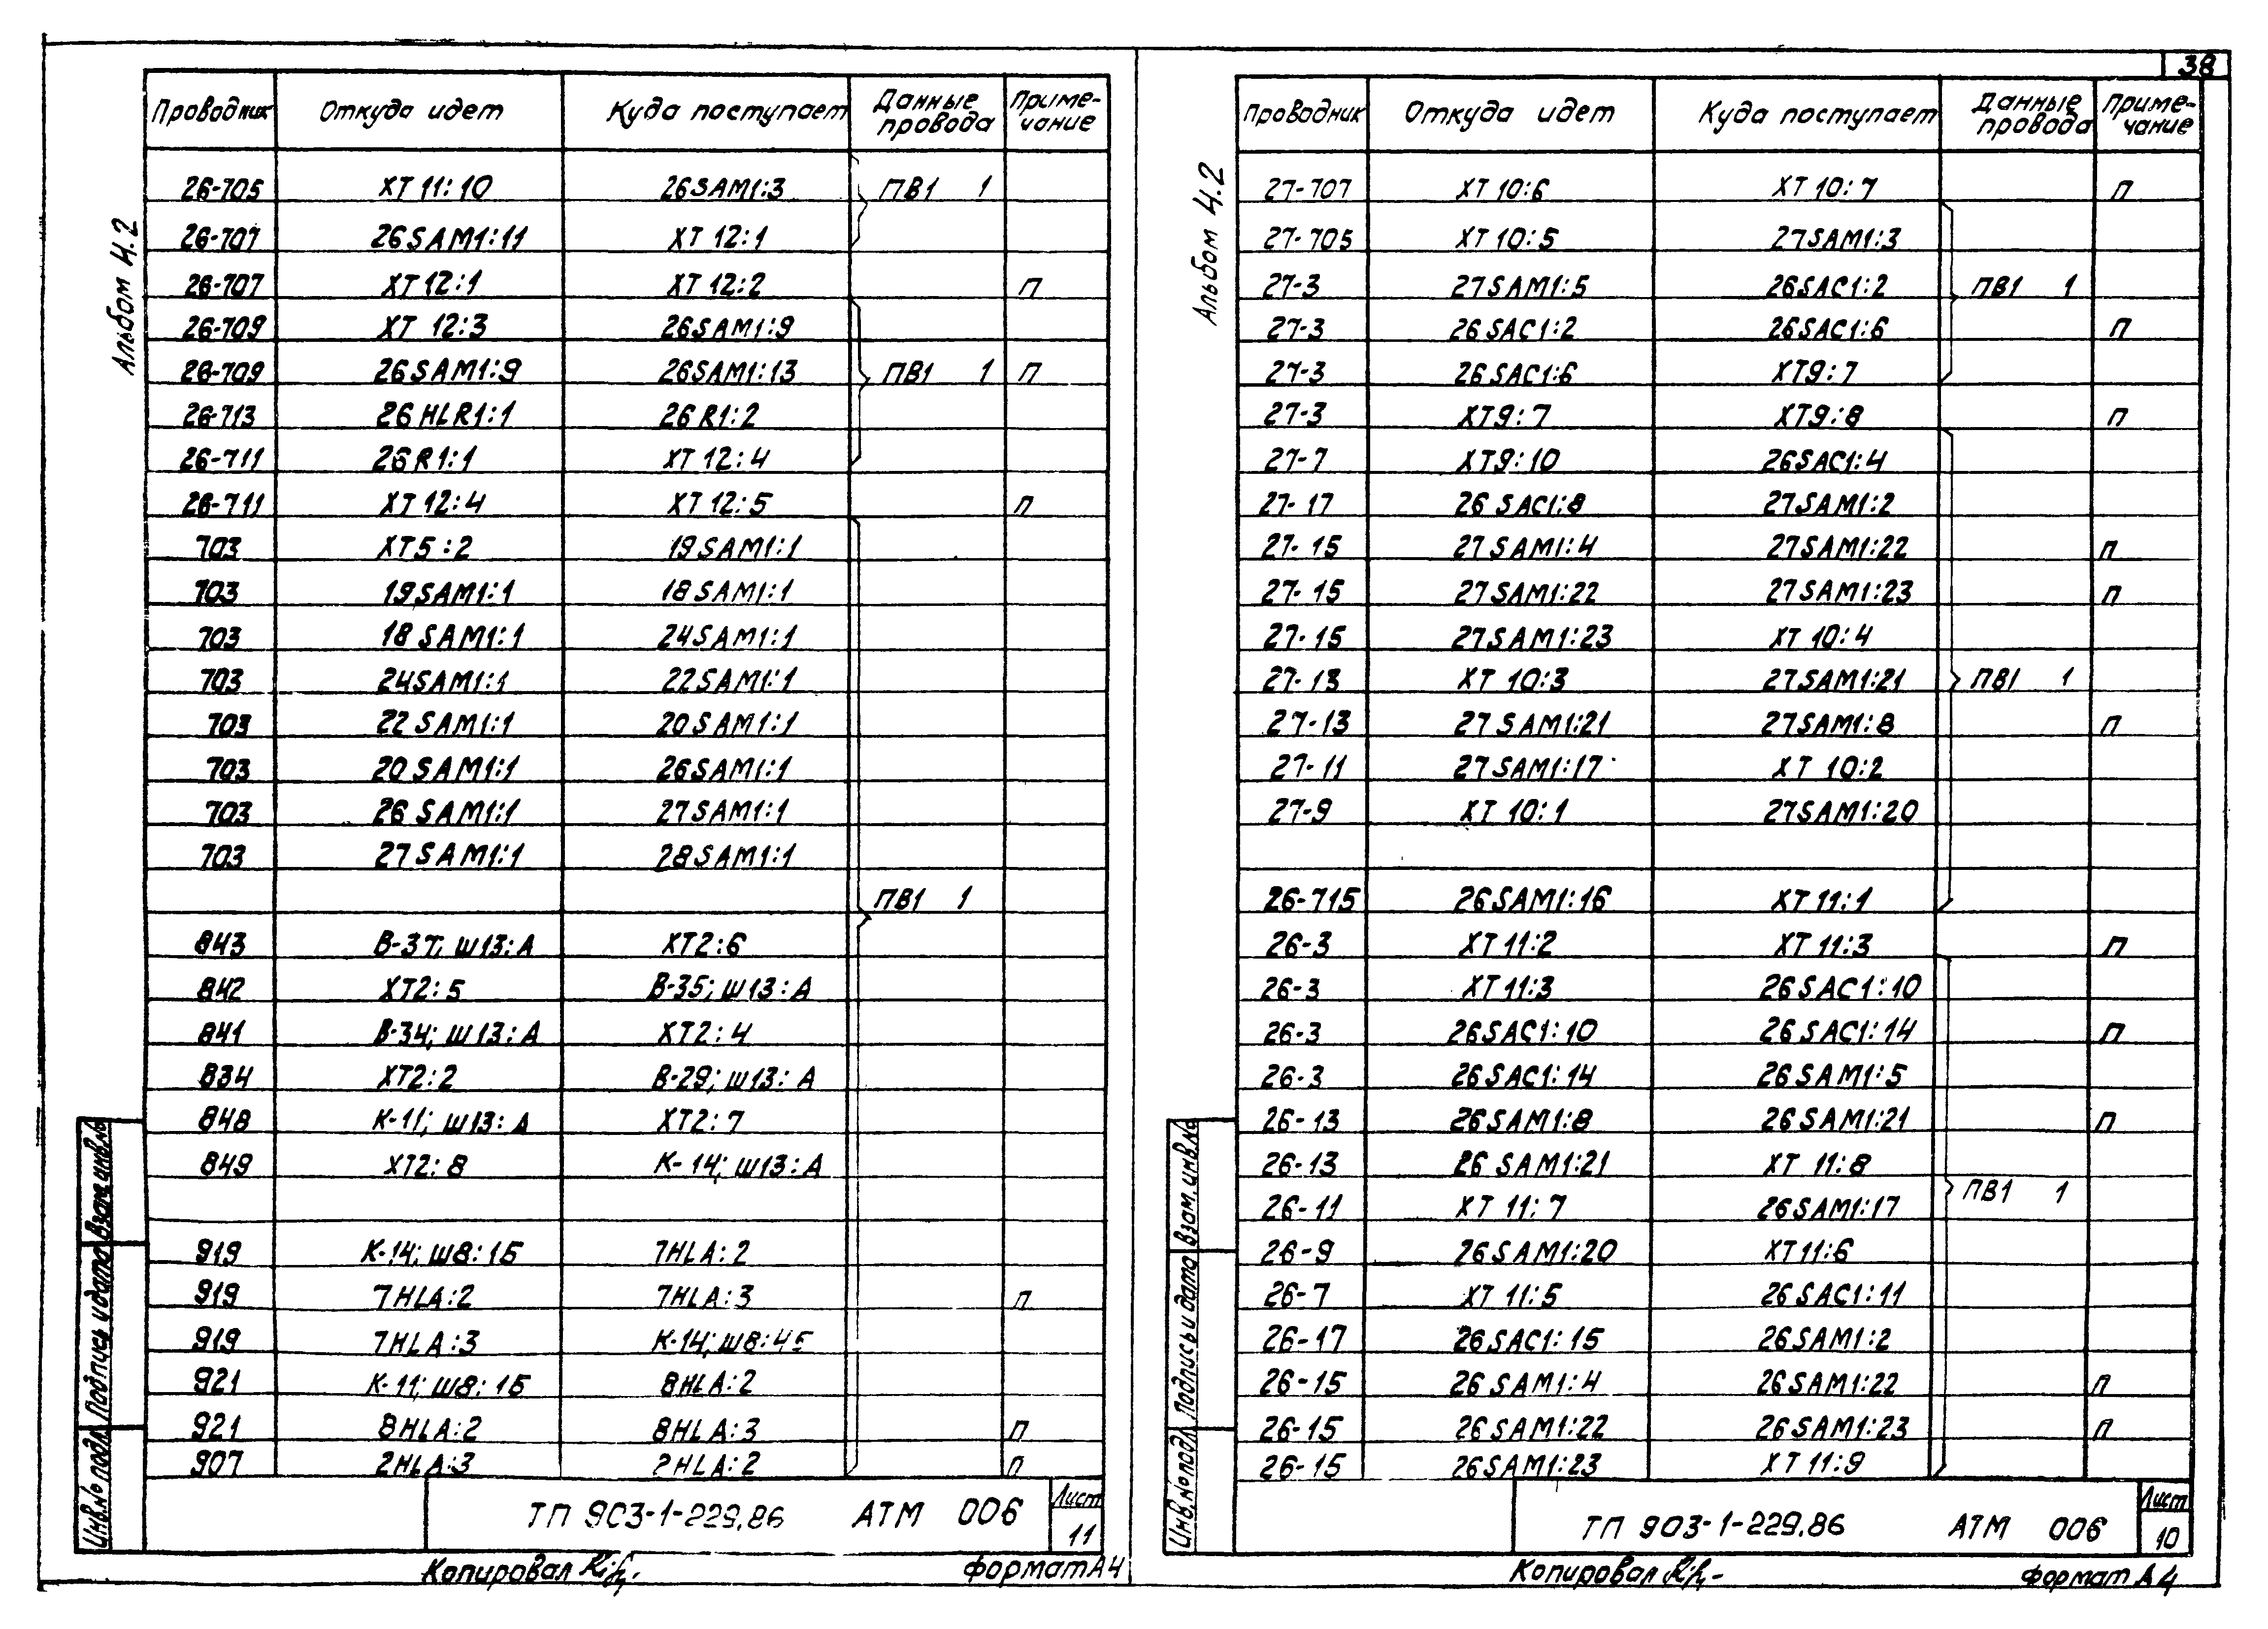 38
Альбом 4.2
Проводник Откуда идет Куда поступает Данные провода Приме-чание
26-705 ХТ 11:10 26SAM1:3 ПВ1 1
26-707 26SAM1:11 ХТ 12:1
26-707 ХТ 12:1 ХТ 12:2 П
26-709 ХТ 12:3 26SAM1:9
26-709 26SAM1:9 26SAM1:13 ПВ1 1 П
26-713 26HLR1:1 26R1:2
26-711 26R1:1 ХТ 12:4
26-711 ХТ 12:4 ХТ 12:5 П
703 ХТ5:2 19SAM1:1
703 19SAM1:1 18SAM1:1
703 18SAM1:1 24SAM1:1
703 24SAM1:1 22SAM1:1
703 22SAM1:1 20SAM1:1
703 20SAM1:1 26SAM1:1
703 26SAM1:1 27SAM1:1
703 27SAM1:1 28SAM1:1
ПВ1 1
843 В-37; Ш13:А ХТ2:6
842 ХТ2:5 В-35; Ш13:А
841 В-34; Ш13:А ХТ2:4
834 ХТ2:2 В-29; Ш13:А
848 К-11; Ш13:А ХТ2:7
849 ХТ2:8 К-14; Ш13:А
919 К-14; Ш8:1Б 7HLA:2
919 7HLA:2 7HLA:3 П
919 7HLA:3 К-14; Ш8:4Б
921 К-11; Ш8:1Б 8HLA:2
921 8HLA:2 8HLA:3 П
907 2HLA:3 2HLA:2 П
Взам. инв.№
Подпись и дата
Инв.№ подл.
ТП 903-1-229.86 АТМ 006
Лист
11
Копировал
Формат А4
Альбом 4.2
Проводник Откуда идет Куда поступает Данные провода Приме-чание
27-707 ХТ 10:6 ХТ 10:7 П
27-705 ХТ 10:5 27SAM1:3
27-3 27SAM1:5 26SAC1:2 ПВ1 1
27-3 26SAC1:2 26SAC1:6 П
27-3 26SAC1:6 ХТ9:7
27-3 ХТ9:7 ХТ9:8 П
27-7 ХТ9:10 26SAC1:4
27-17 26SAC1:8 27SAM1:2
27-15 27SAM1:4 27SAM1:22 П
27-15 27SAM1:22 27SAM1:23 П
27-15 27SAM1:23 ХТ 10:4
27-13 ХТ 10:3 27SAM1:21 ПВ1 1
27-13 27SAM1:21 27SAM1:8 П
27-11 27SAM1:17 ХТ 10:2
27-9 ХТ 10:1 27SAM1:20
26-715 26SAM1:16 ХТ 11:1
26-3 ХТ 11:2 ХТ 11:3 П
26-3 ХТ 11:3 26SAC1:10
26-3 26SAC1:10 26SAC1:14 П
26-3 26SAC1:14 26SAM1:5
26-13 26SAM1:8 26SAM1:21 П
26-13 26SAM1:21 ХТ 11:8
26-11 ХТ 11:7 26SAM1:17 ПВ1 1
26-9 26SAM1:20 ХТ11:6
26-7 ХТ 11:5 26SAC1:11
26-17 26SAC1:15 26SAM1:2
26-15 26SAM1:4 26SAM1:22 П
26-15 26SAM1:22 26SAM1:23 П
26-15 26SAM1:23 ХТ 11:9
Взам. инв.№
Подпись и дата
Инв.№ подл.
ТП 903-1-229.86 АТМ 006
Лист
10
Копировал
Формат А4